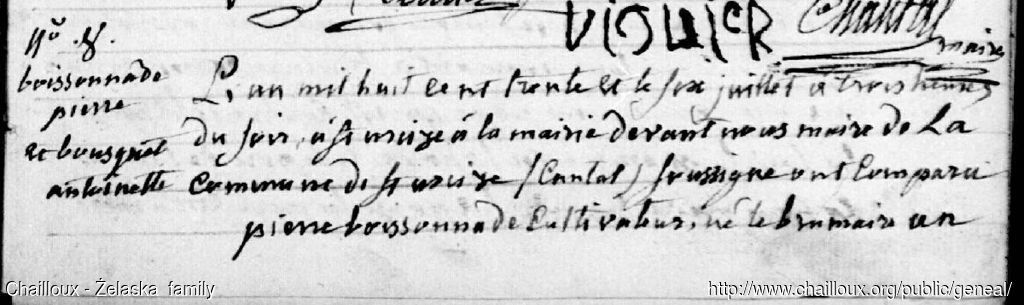 VIGUIER Chantal
maire
N° 8.
boissonnade
pierre
et bousquet
antoinette
L'an mil huit cent trente et le six juillet a trois heures
du soir, a st urcize á la mairie devant nous maire de La
Commune de st urcize (Cantal) soussigne ont Comparu
pierre boissonnade Cultivateur, né le brumaire an
Chailloux - Želaska family
http://www.chailloux.org/public/geneal/